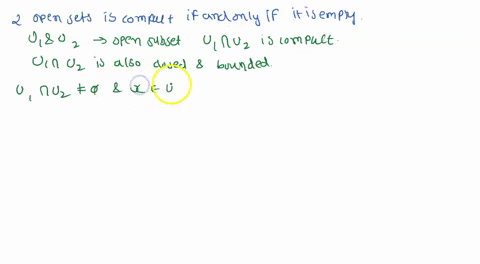 2 open sets is compact if and only if it is empty.
U₁ & U₂ → open subset U₁ ∩ U₂ is compact.
U₁ ∩ U₂ is also closed & bounded.
U₁ ∩ U₂ ≠ ϕ & x ∈ U